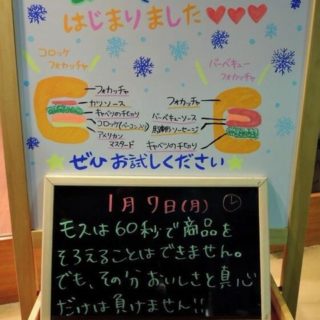 はじまりました♥♥♥
コロッケ
フォカッチャ
バーベキュー
フォカッチャ
フォカッチャ
カツソース
キャベツの千切り
コロッケ(ベーコン入り)
アメリカン
マスタード
フォカッチャ
バーベキューソース
ソーセージ
キャベツの千切り
★ぜひお試しください★
1月7日(月)
モスは60秒で商品を
そろえることはできません。
でも、その分おいしさと真心
だけは負けません!!